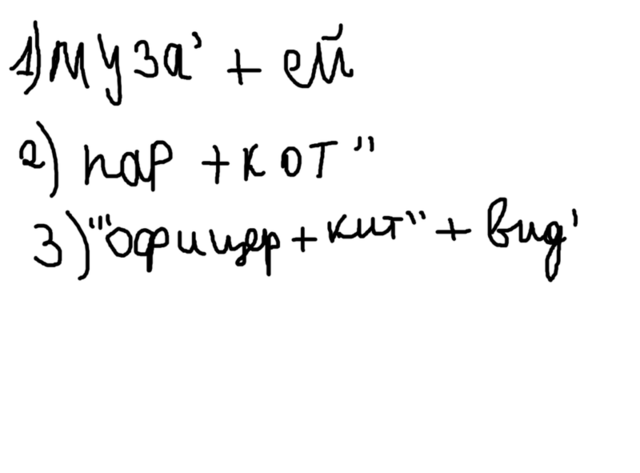 1) муза' + ей
2) пар + кот"
3) "'офицер + кит" + вид'